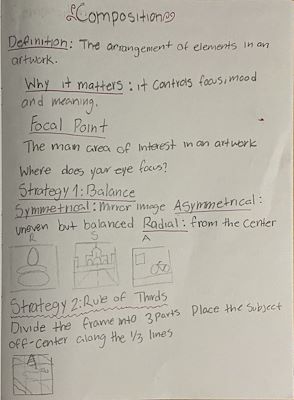 Composition
Definition: The arrangement of elements in an
artwork.
Why it matters: it controls focus, mood
and meaning.
Focal Point
The main area of interest in an artwork
Where does your eye focus?
Strategy 1: Balance
Symmetrical: Mirror image Asymmetrical:
uneven but balanced Radial: from the center
R S A
Strategy 2: Rule of Thirds
Divide the frame into 3 parts Place the subject
off-center along the 1/3 lines